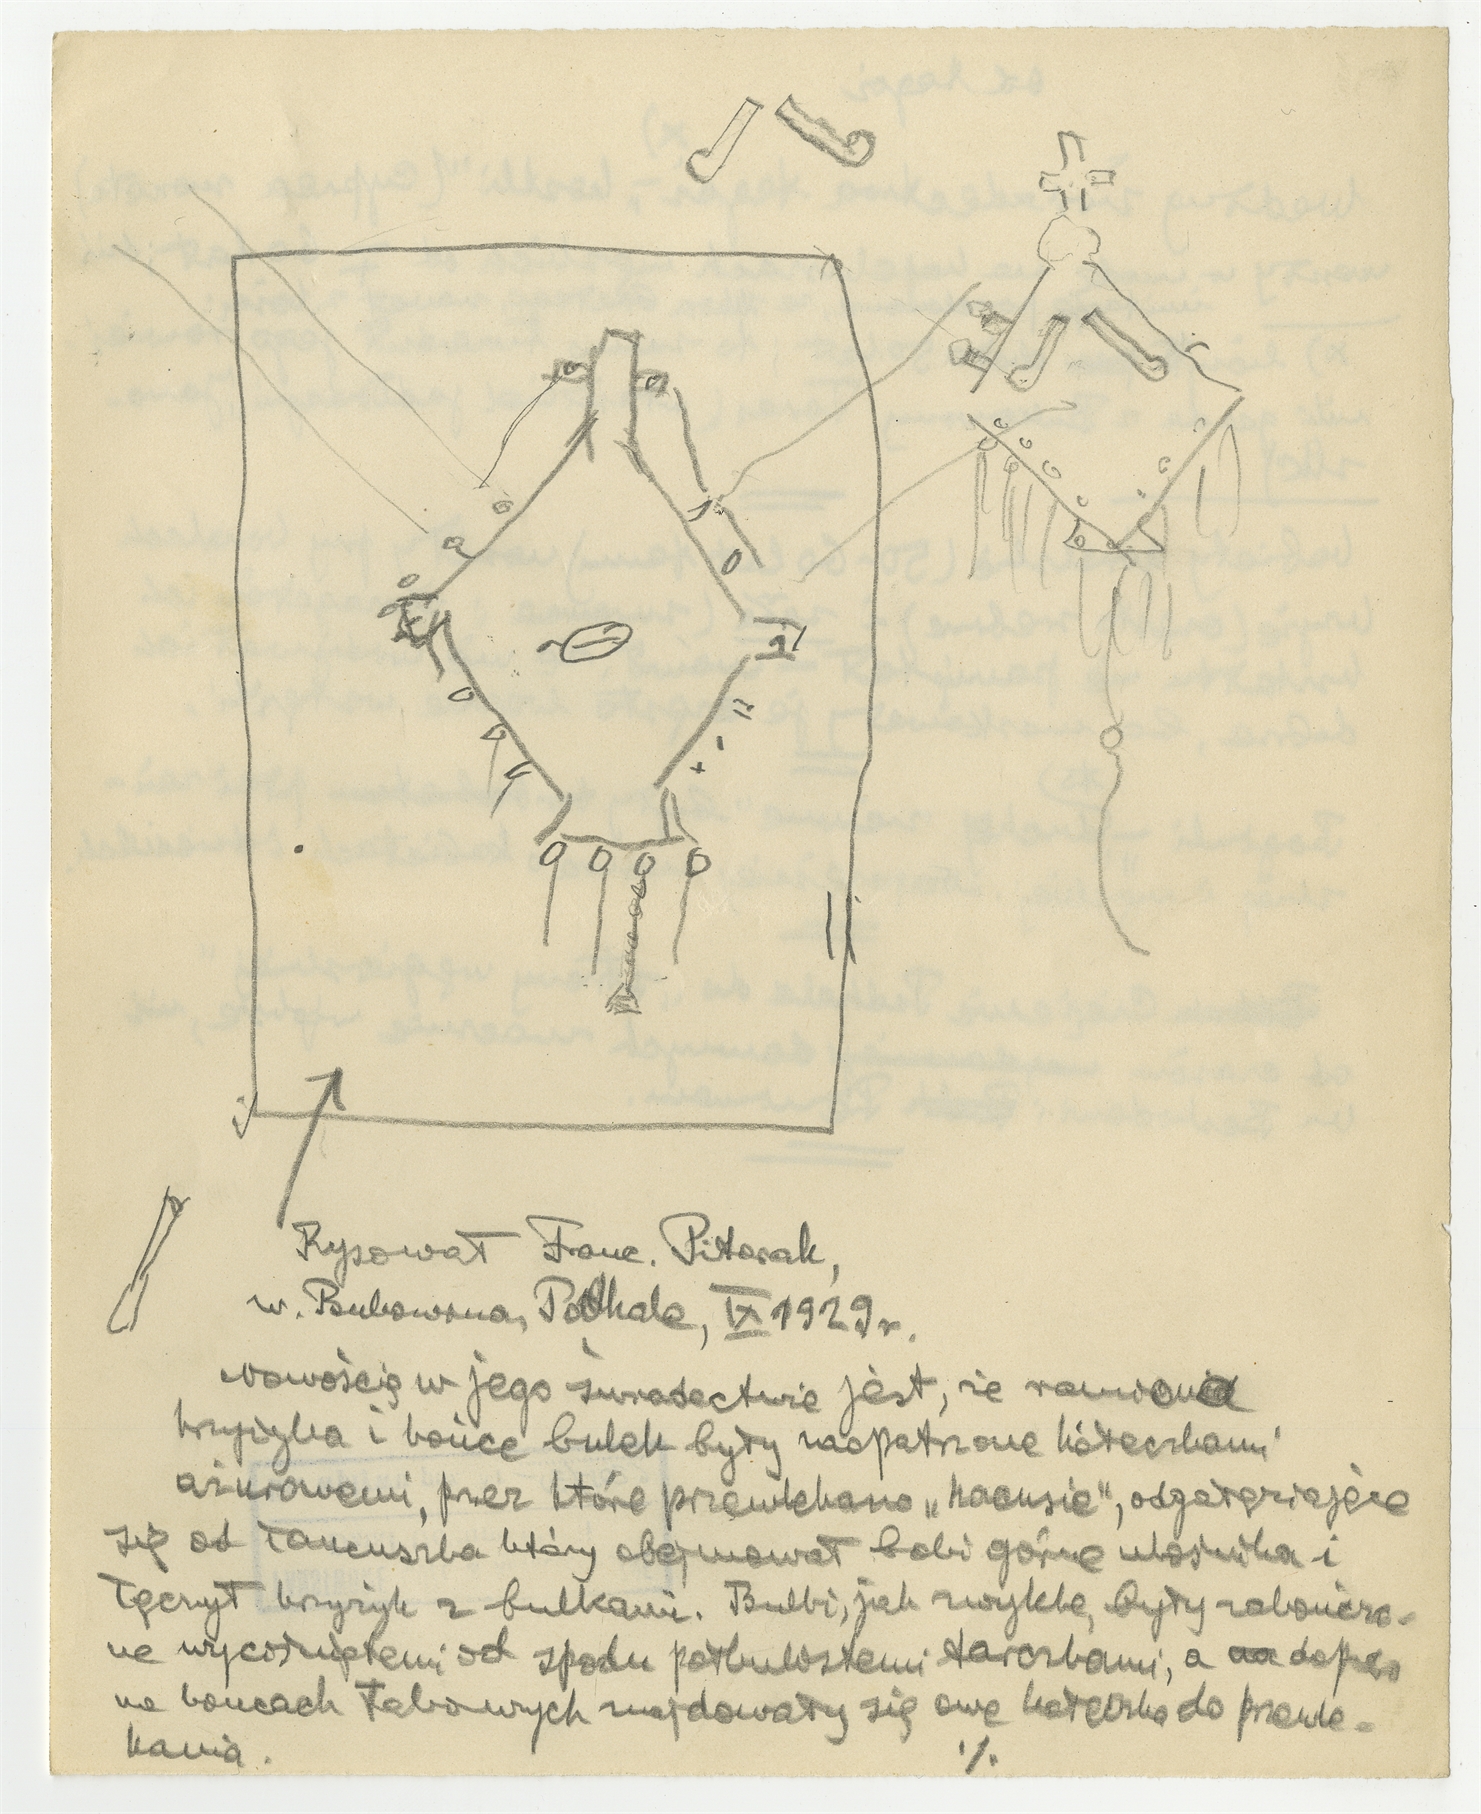 Rysował Franc. Pitorak,
w. Bukowina, Podhale, IX 1929 r.
Nowością w jego świadectwie jest, że ramiona
krzyżyka i końce bulek były zaopatrzone kółeczkami
ażurowemi, przez które przewlekano „kacusie", odgałęziające
się od łańcuszka który obejmował boki górne
łączył krzyżyk z bulkami. Bulki, jak zwykle, były zakończo-
ne wyciśniętemi od spodu półkulistemi tarczkami, a dopiero
na końcach łabowych znajdowały się owe kółeczka do przewle-
kania.
./.